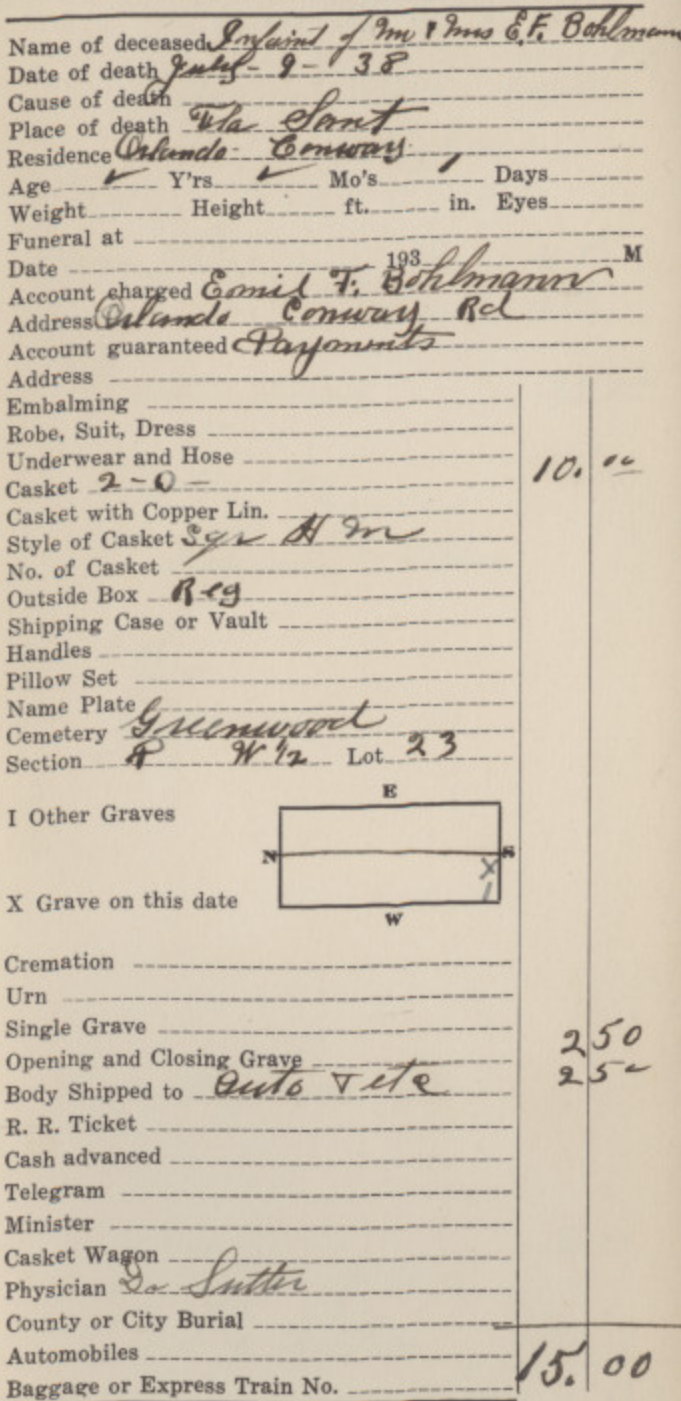 Name of deceased Infaint of Mr & Mrs E.F. Bohlmann
Date of death July - 9 - 38
Cause of death
Place of death Fla Sant
Residence Orlando Conway
Age ✓ Y'rs ✓ Mo's 1 Days
Weight Height ft. in. Eyes
Funeral at
Date 193 M
Account charged Emil F. Bohlmann
Address Orlando Conway Rd
Account guaranteed Payments
Address
Embalming
Robe, Suit, Dress
Underwear and Hose
Casket 2-0- 10.00
Casket with Copper Lin.
Style of Casket Sqr H M
No. of Casket
Outside Box Reg
Shipping Case or Vault
Handles
Pillow Set
Name Plate
Cemetery Greenwood
Section W 1/2 Lot 23
E
I Other Graves
N S
X
X Grave on this date
W
Cremation
Urn
Single Grave
Opening and Closing Grave 2 50
Body Shipped to Auto 2 50
R. R. Ticket
Cash advanced
Telegram
Minister
Casket Wagon
Physician Dr Sutter
County or City Burial
Automobiles 15.00
Baggage or Express Train No.